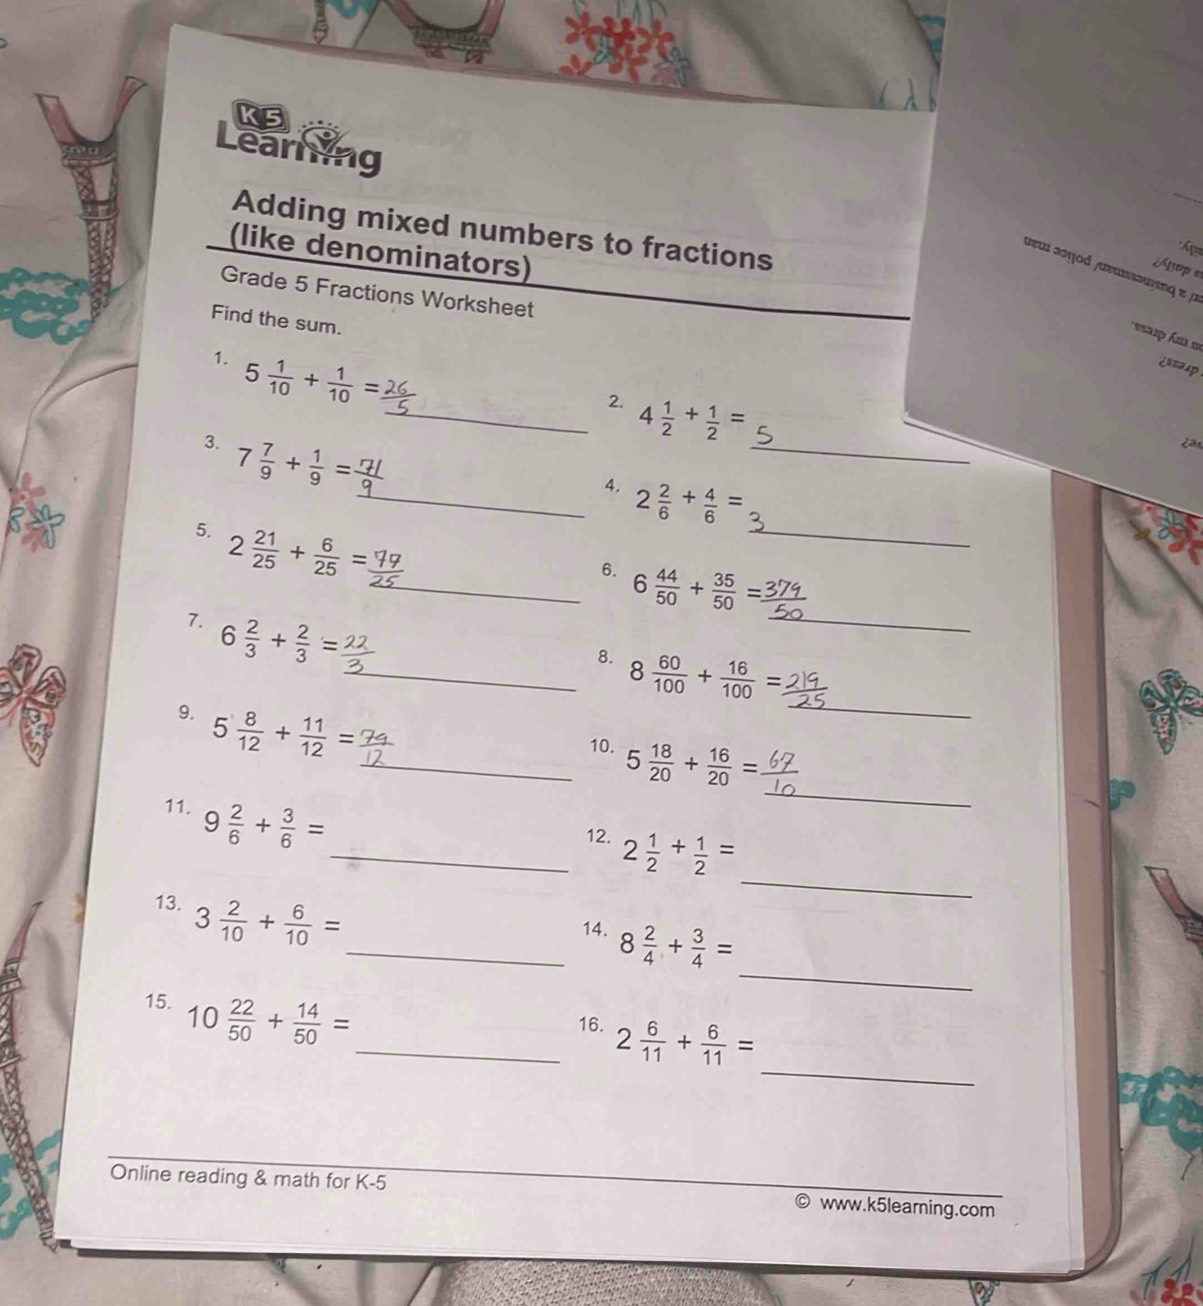 K5
Learning
Adding mixed numbers to fractions
(like denominators)
Grade 5 Fractions Worksheet
Find the sum.
1. 5 1/10 + 1/10 = 26/5
2. 4 1/2 + 1/2 = 5
3. 7 7/9 + 1/9 = 71/9
4. 2 2/6 + 4/6 = 3
5. 2 21/25 + 6/25 = 77/25
6. 6 44/50 + 35/50 = 379/50
7. 6 2/3 + 2/3 = 22/3
8. 8 60/100 + 16/100 = 219/25
9. 5 8/12 + 11/12 = 79/12
10. 5 18/20 + 16/20 = 67/10
11. 9 2/6 + 3/6 =
12. 2 1/2 + 1/2 =
13. 3 2/10 + 6/10 =
14. 8 2/4 + 3/4 =
15. 10 22/50 + 14/50 =
16. 2 6/11 + 6/11 =
Online reading & math for K-5
© www.k5learning.com
dress?
on my dress.
a businessman/ police man
daily?